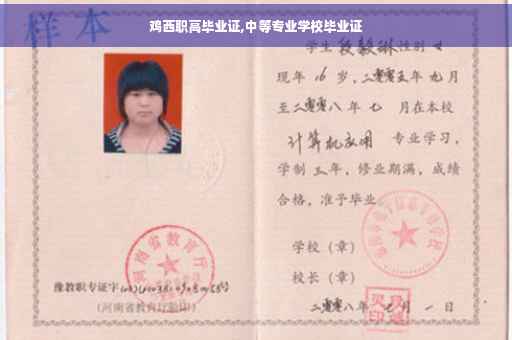 鸡西职高毕业证,中等专业学校毕业证
样本
学生 段毅琳 性别 女
现年 16 岁，二零零五年 九 月
至二零零八年 七 月在本校
计算机应用 专业学习，
学制 三 年，修业期满，成绩
合格，准予毕业
学校（章）
校长（章）
二零零八年 月 一 日
河南省教育厅
豫教职专证字
(河南省教育厅验印)